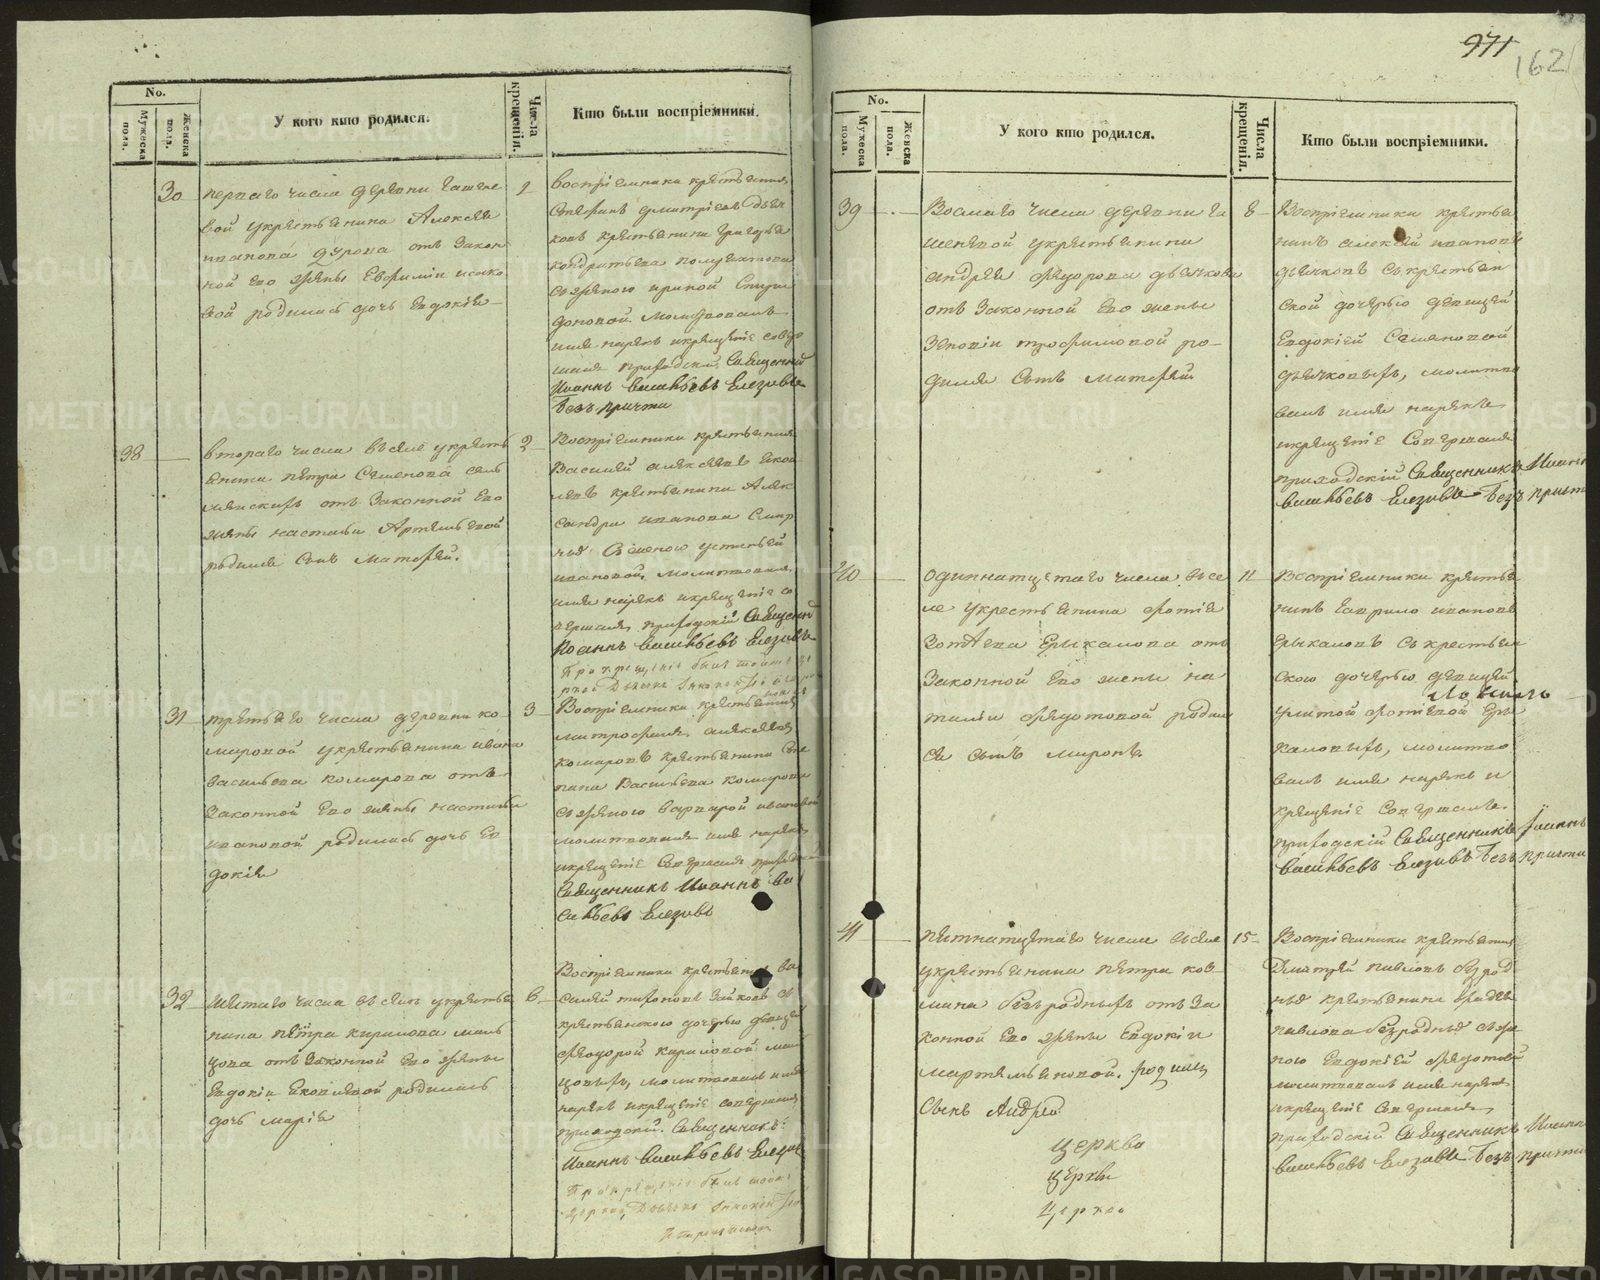 No.
Мужеска пола.
Женска пола.
У кого кто родился.
Числа крещенія.
Кто были воспріемники.
30
перваго числа деревни
вой укрестьянина Алексея
иванова от закон
ной его жены Евфиміи
родилась дочь Евдокія
1
воспріемники крестьянинъ
Стефанъ Дмитріевъ
крестьянина Григорья
кондратьева
сженою ириной Спири
доновой молитвовалъ
имя нарекъ икрещеніе совер
шилъ приходскій Священникъ
Иоаннъ Васильевъ Елезовъ
безъ причта
38
втораго числа вселе укресть
янина петра Семенова
отъ Законной Его
жены настасьи Артемьевой
родился Сынъ Матвей.
2
Воспріемники крестьянинъ
Василей алексеевъ
крестьянина Алек
сандра иванова
Сженою устиньей
ивановой, молитвовалъ
имя нарекъ икрещеніе со
вершилъ приходскій Священникъ
Иоаннъ Васильевъ Елезовъ
31
третьяго числа деревни ко
маровой укрестьянина ивана
васильева комарова отъ
Законной Его жены настасьи
ивановой родилась дочь Ев
докія
3
Воспріемники крестьянинъ
митрофанъ алексеевъ
комаровъ крестьянина Сте
пана Васильева комарова
сженою варварой ивановой
молитвовалъ имя нарекъ
икрещеніе Совершилъ приходской
Священникъ Иоаннъ Ва
сильевъ Елезовъ
32
шестаго числа вселе укрестья
нина петра кирилова маль
цова отъ Законной его жены
Евдокіи Яковлевой родилась
дочь марія
6
Воспріемники крестьянинъ ва
силей тихоновъ Зайковъ съ
крестьянскою дочерью девицей
феодорой кириловой маль
цовыхъ, молитвовалъ имя
нарекъ икрещеніе совершилъ
приходской Священникъ
Иоаннъ Васильевъ Елезовъ
971
162
No.
Мужеска пола.
Женска пола.
У кого кто родился.
Числа крещенія.
Кто были воспріемники.
39
Восмаго числа деревни
укрестьянина
андрея федорова дьячкова
отъ Законной Его жены
Зеновіи трофимовой ро
дился Сынъ Матвей
8
Воспріемники крестья
нинъ алексей ивановъ
дьячковъ скрестьян
ской дочерью девицей
Евдокіей Семеновой
дьячковыхъ, молитво
валъ имя нарекъ
икрещеніе Совершилъ
приходскій Священникъ Иоаннъ
Васильевъ Елезовъ безъ причта
40
одиннатцетаго числа всe
ле укрестьянина фотія
Ерыкалова отъ
Законной Его жены на
таліи федотовой родил
ся сынъ миронъ
11
Воспріемники крестья
нинъ Гаврило ивановъ
Ерыкаловъ скрестьян
скою дочерью девицей
улитой фотіевой Еры
каловыхъ, молитво
валъ имя нарекъ и
крещеніе Совершилъ
приходскій Священникъ Іоаннъ
Васильевъ Елезовъ безъ причта
41
пятнатцетаго числа вселе
укрестьянина петра коз
мина безродныхъ отъ За
конной Его жены Евдокіи
мартемьяновой. родился
Сынъ Андрей
церкво
церкви
церкво
15
Воспріемники крестьянинъ
Дмитрей павловъ безрод
ныхъ крестьянина
павлова безродныхъ съже
ною Евдокіей федотовой
молитвовалъ имя нарекъ
икрещеніе Совершилъ
приходскій Священникъ Иоаннъ
Васильевъ Елезовъ безъ причта
METRIKI.GASO-URAL.RU